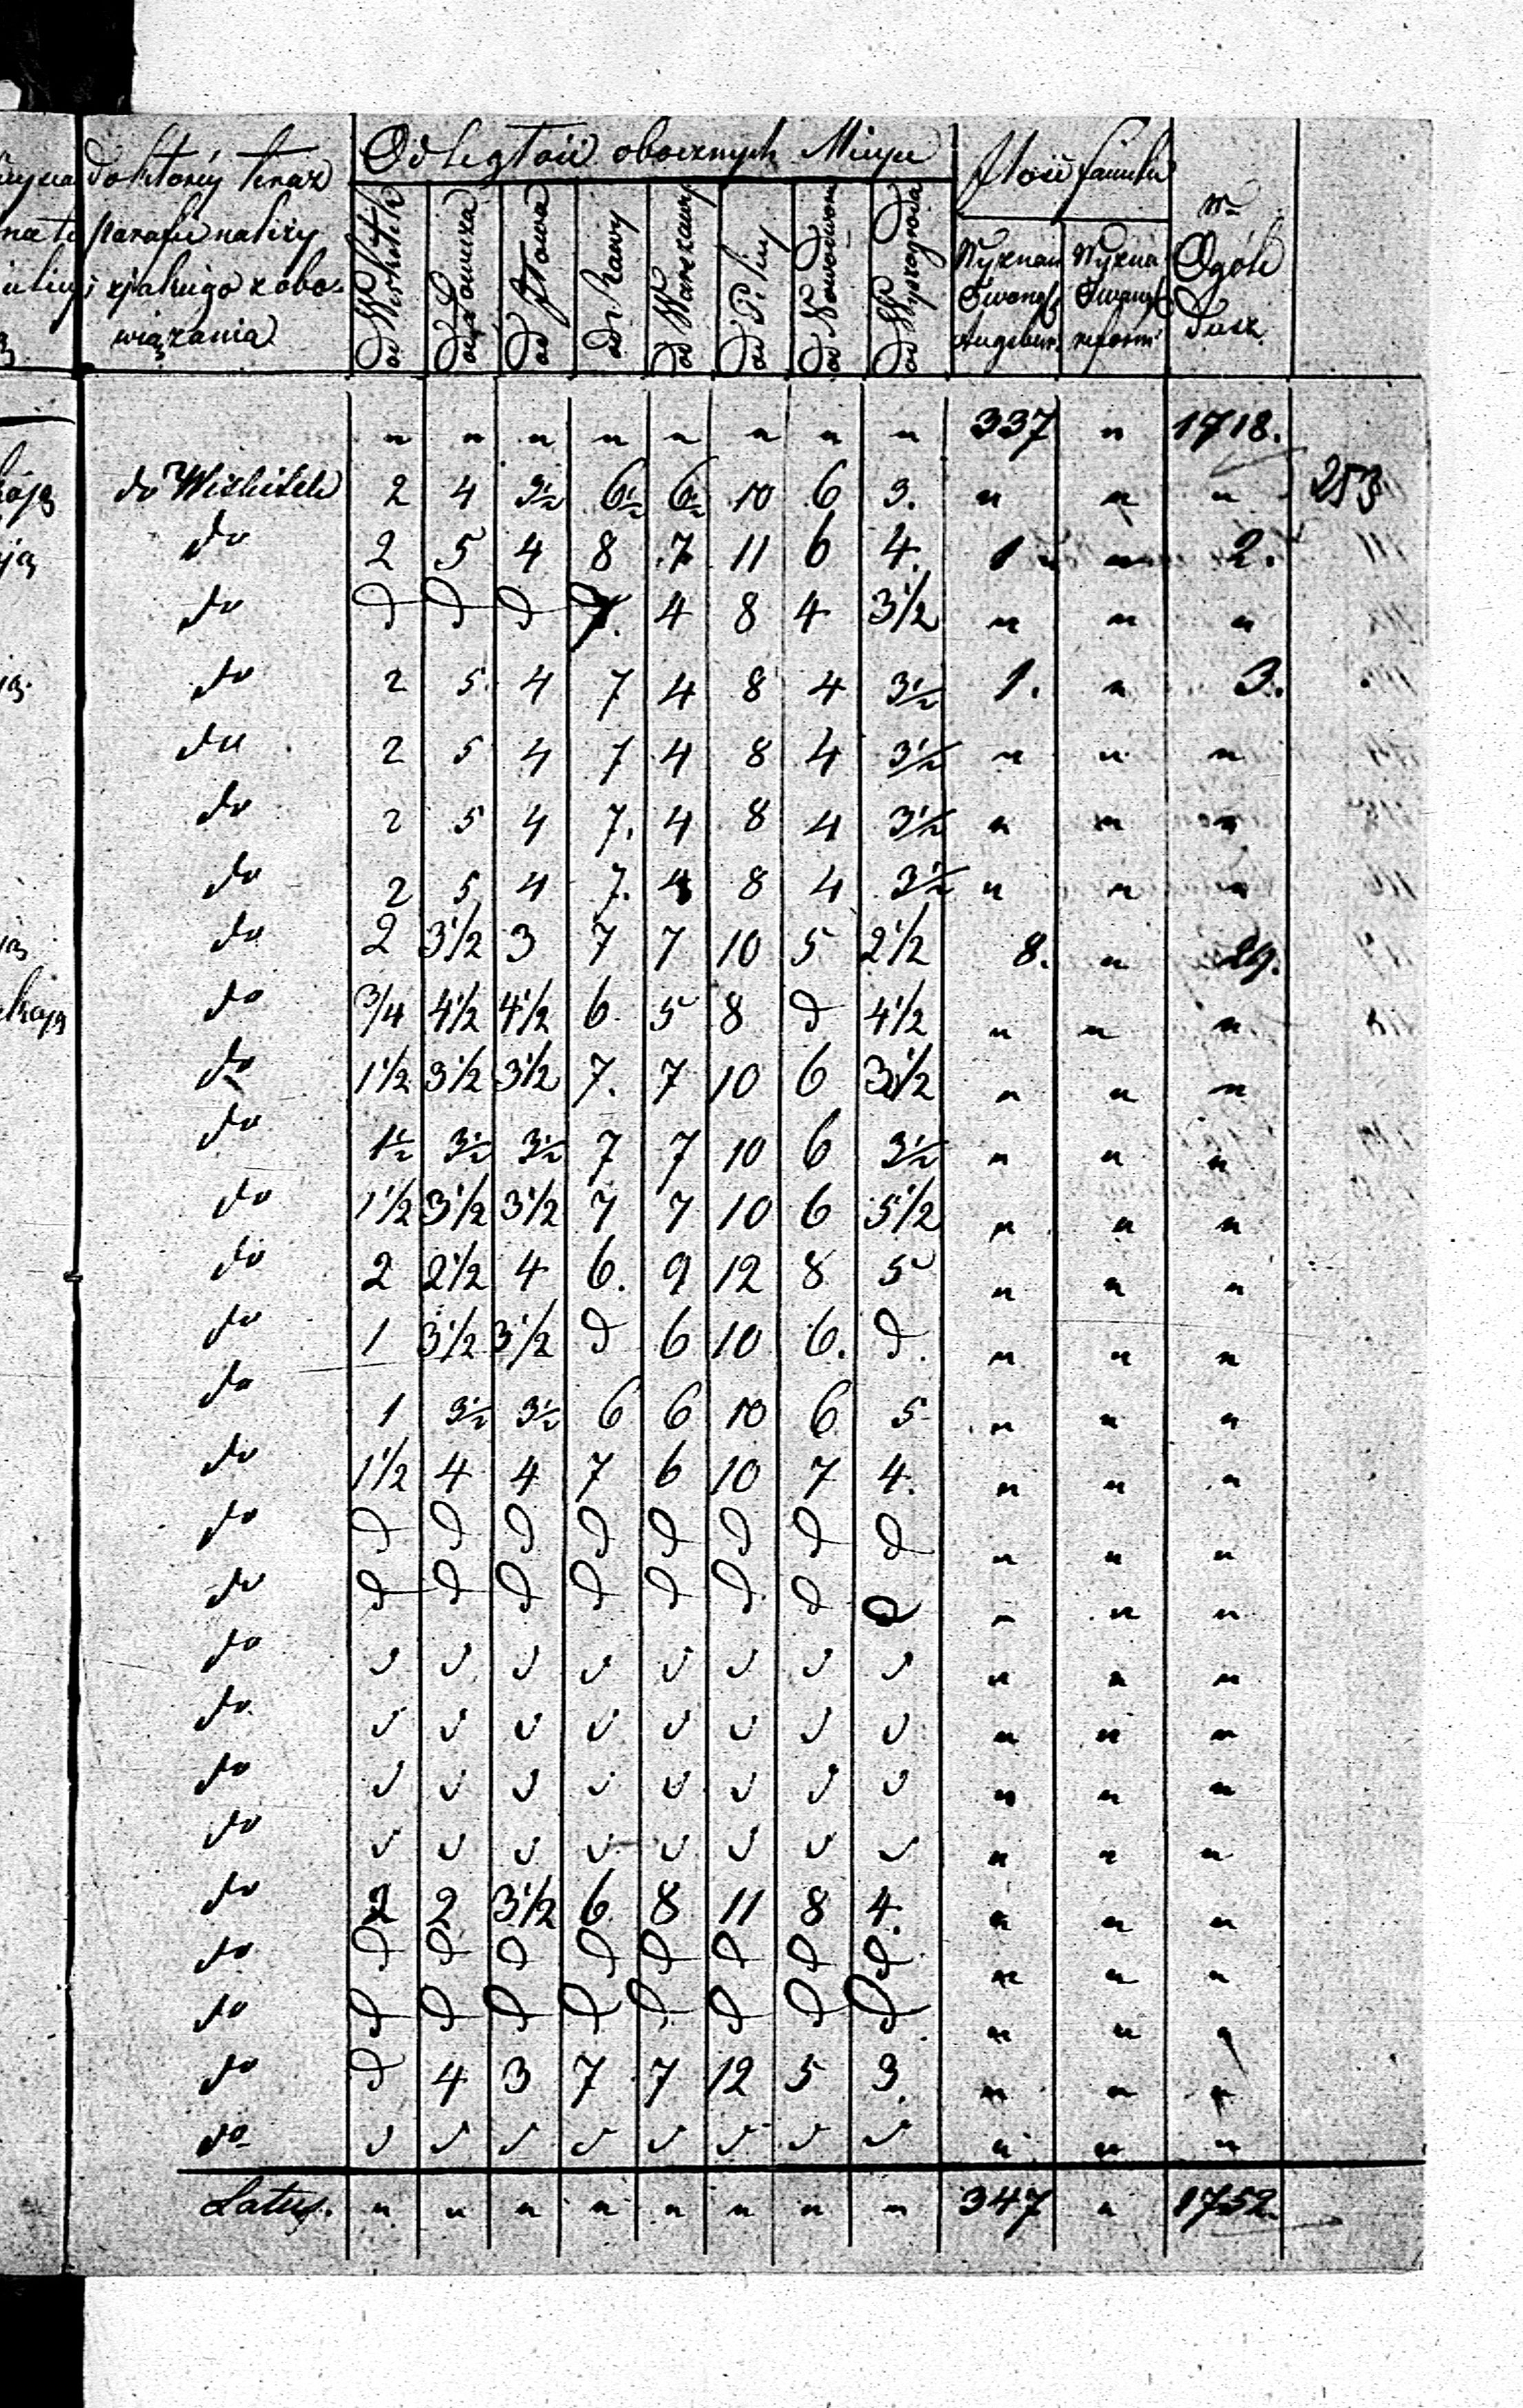 Odległość obocznych Miejsc
Ilość familii
w Ogóle Dusz
do którey teraz
parafii należy
z jakiego zobo-
wiązania
od Wiskitek
od Łowicza
od Iłowa
od Rawy
od Warszawy
od Pilicy
od Nowodworu
od Wyszogrodu
Wyznan Ewang Augsbur.
Wyzna Ewang reform
" " " " " " " " 337 " 1718.
do Wiskitek 2 4 3½ 6½ 6½ 10 6 3. " " " 253
do 2 5 4 8 7 11 6 4. 1 " 2.
do d d d 7. 4 8 4 3½ " " "
do 2 5 4 7 4 8 4 3½ 1. " 3.
do 2 5 4 7 4 8 4 3½ " " "
do 2 5 4 7. 4 8 4 3½ " " "
do 2 5 4 7. 4 8 4 3½ " " "
do 2 3½ 3 7 7 10 5 2½ 8. " 29.
do ¾ 4½ 4½ 6 5 8 d 4½ " " "
do 1½ 3½ 3½ 7. 7 10 6 3½ " " "
do 1½ 3½ 3½ 7 7 10 6 3½ " " "
do 1½ 3½ 3½ 7 7 10 6 5½ " " "
do 2 2½ 4 6. 9 12 8 5 " " "
do 1 3½ 3½ d 6 10 6. d. " " "
do 1 3½ 3½ 6 6 10 6 5 " " "
do 1½ 4 4 7 6 10 7 4. " " "
do d d d d d d d d " " "
do d d d d d d d d " " "
do " " "
do " " "
do " " "
do " " "
do 2 2 3½ 6 8 11 8 4. " " "
do d d d d d d d d " " "
do d d d d d d d d " " "
do d 4 3 7 7 12 5 3. " " "
do " " "
Latus. " " " " " " " " 347 " 1752.